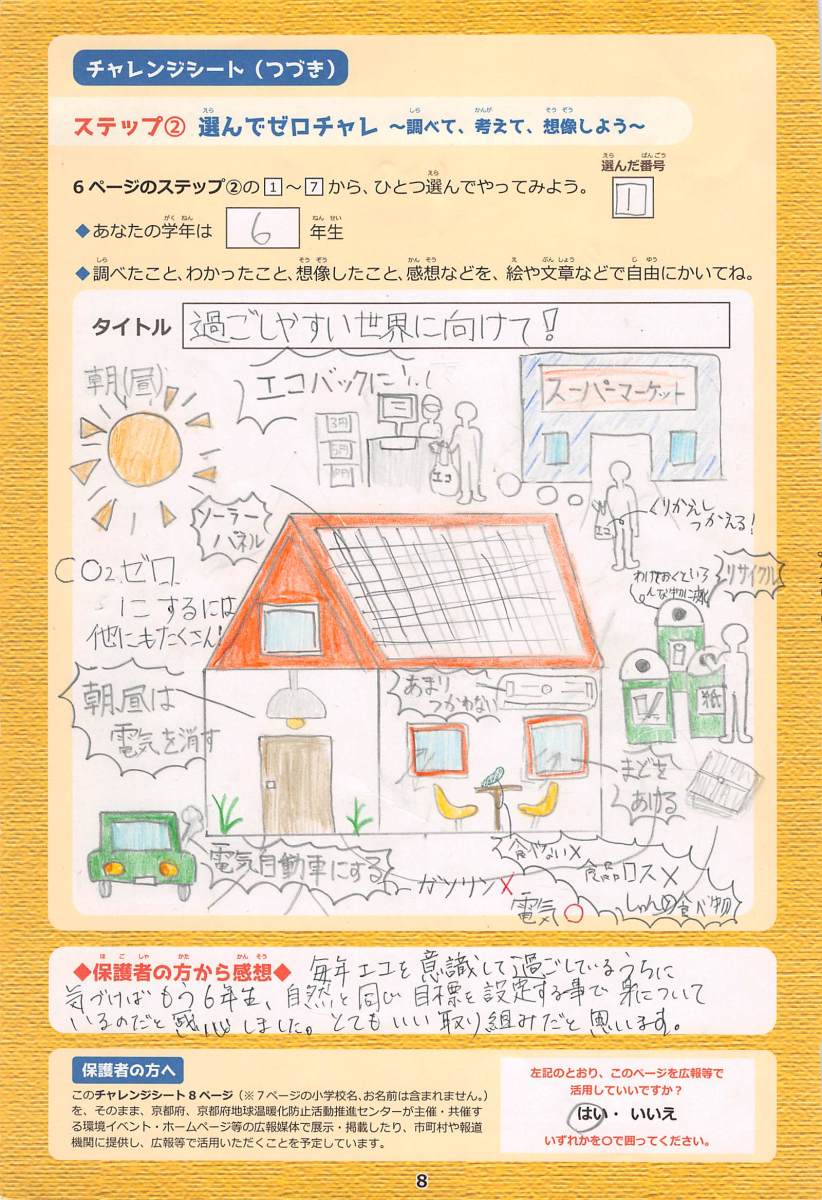 チャレンジシート（つづき）
ステップ② 選んでゼロチャレ ～調べて、考えて、想像しよう～
6ページのステップ②の1～7から、ひとつ選んでやってみよう。
選んだ番号
1
◆あなたの学年は 6 年生
◆調べたこと、わかったこと、想像したこと、感想などを、絵や文章などで自由にかいてね。
タイトル 過ごしやすい世界に向けて!
朝(昼)
エコバックに
スーパーマーケット
3円
5円
エコ
エコ
くりかえし
つかえる!
ソーラー
パネル
CO2ゼロ
にするには
他にもたくさん!
わけておくといろ
リサイクル
紙
朝昼は
電気を消す
あまり
つかわない
まどを
あける
電気自動車にする
ガソリン×
電気○
食品ロス×
◆保護者の方から感想◆ 毎年エコを意識して過ごしているうちに
気づけばもう6年生、自然と同じ目標を設定する事で身について
いるのだと感心しました。とてもいい取り組みだと思います。
保護者の方へ
このチャレンジシート8ページ（※7ページの小学校名、お名前は含まれません。）
を、そのまま、京都府、京都府地球温暖化防止活動推進センターが主催・共催す
る環境イベント・ホームページ等の広報媒体で展示・掲載したり、市町村や報道
機関に提供し、広報等で活用いただくことを予定しています。
左記のとおり、このページを広報等で
活用していいですか？
はい・いいえ
いずれかを○で囲ってください。
8